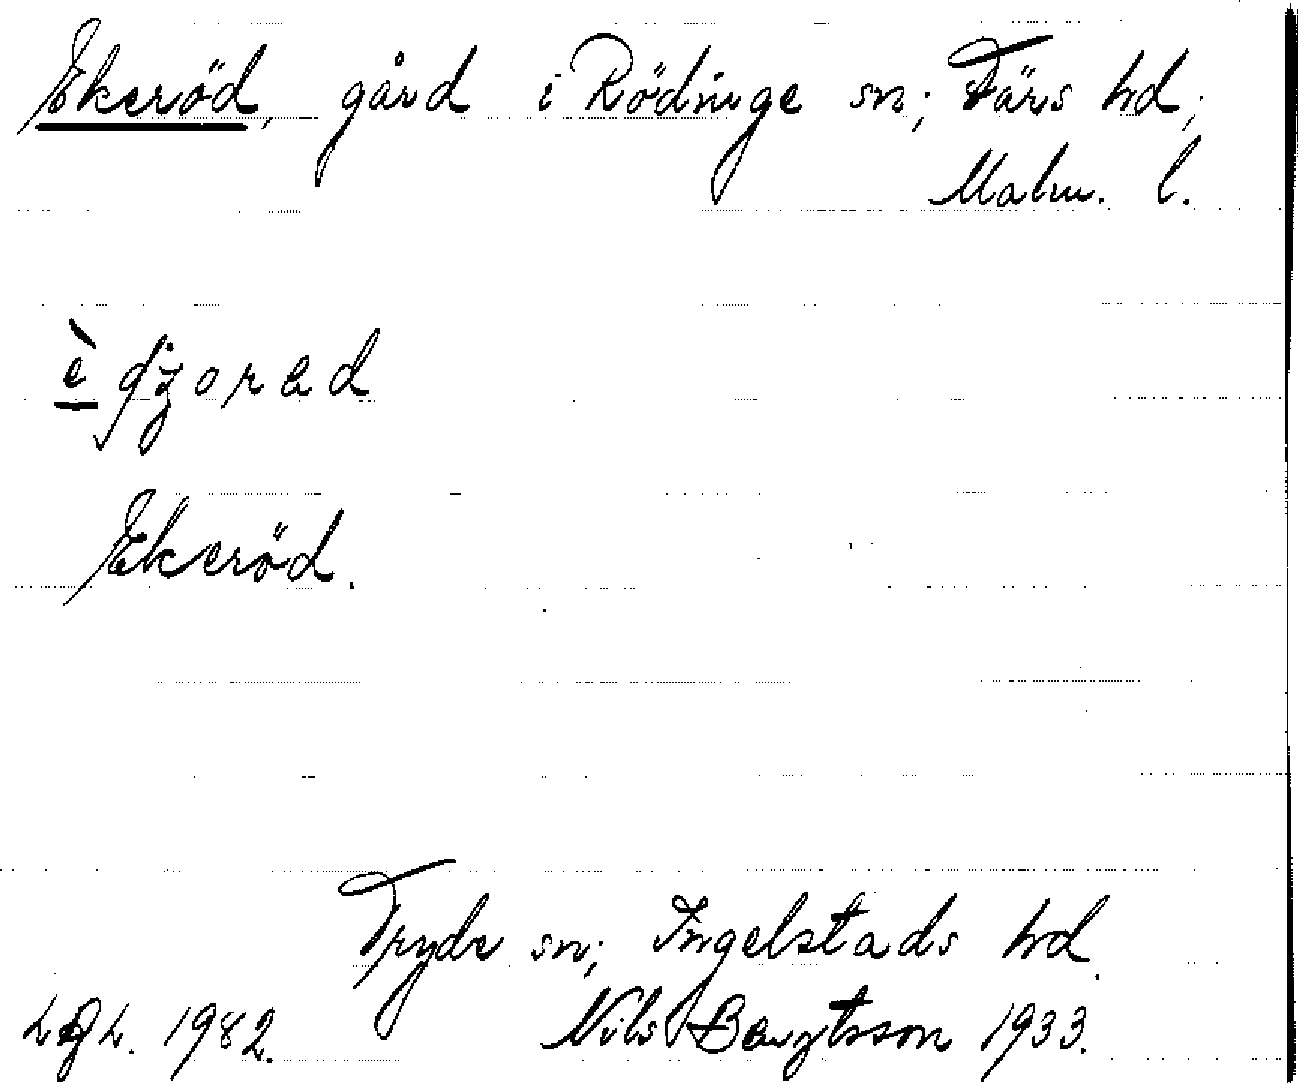 Ekeröd, gård i Rödinge sn; Färs hd;
Malm. l.
Ekeröd.
Tryde sn; Ingelstads hd.
1982. Nils Bengtsson 1933.